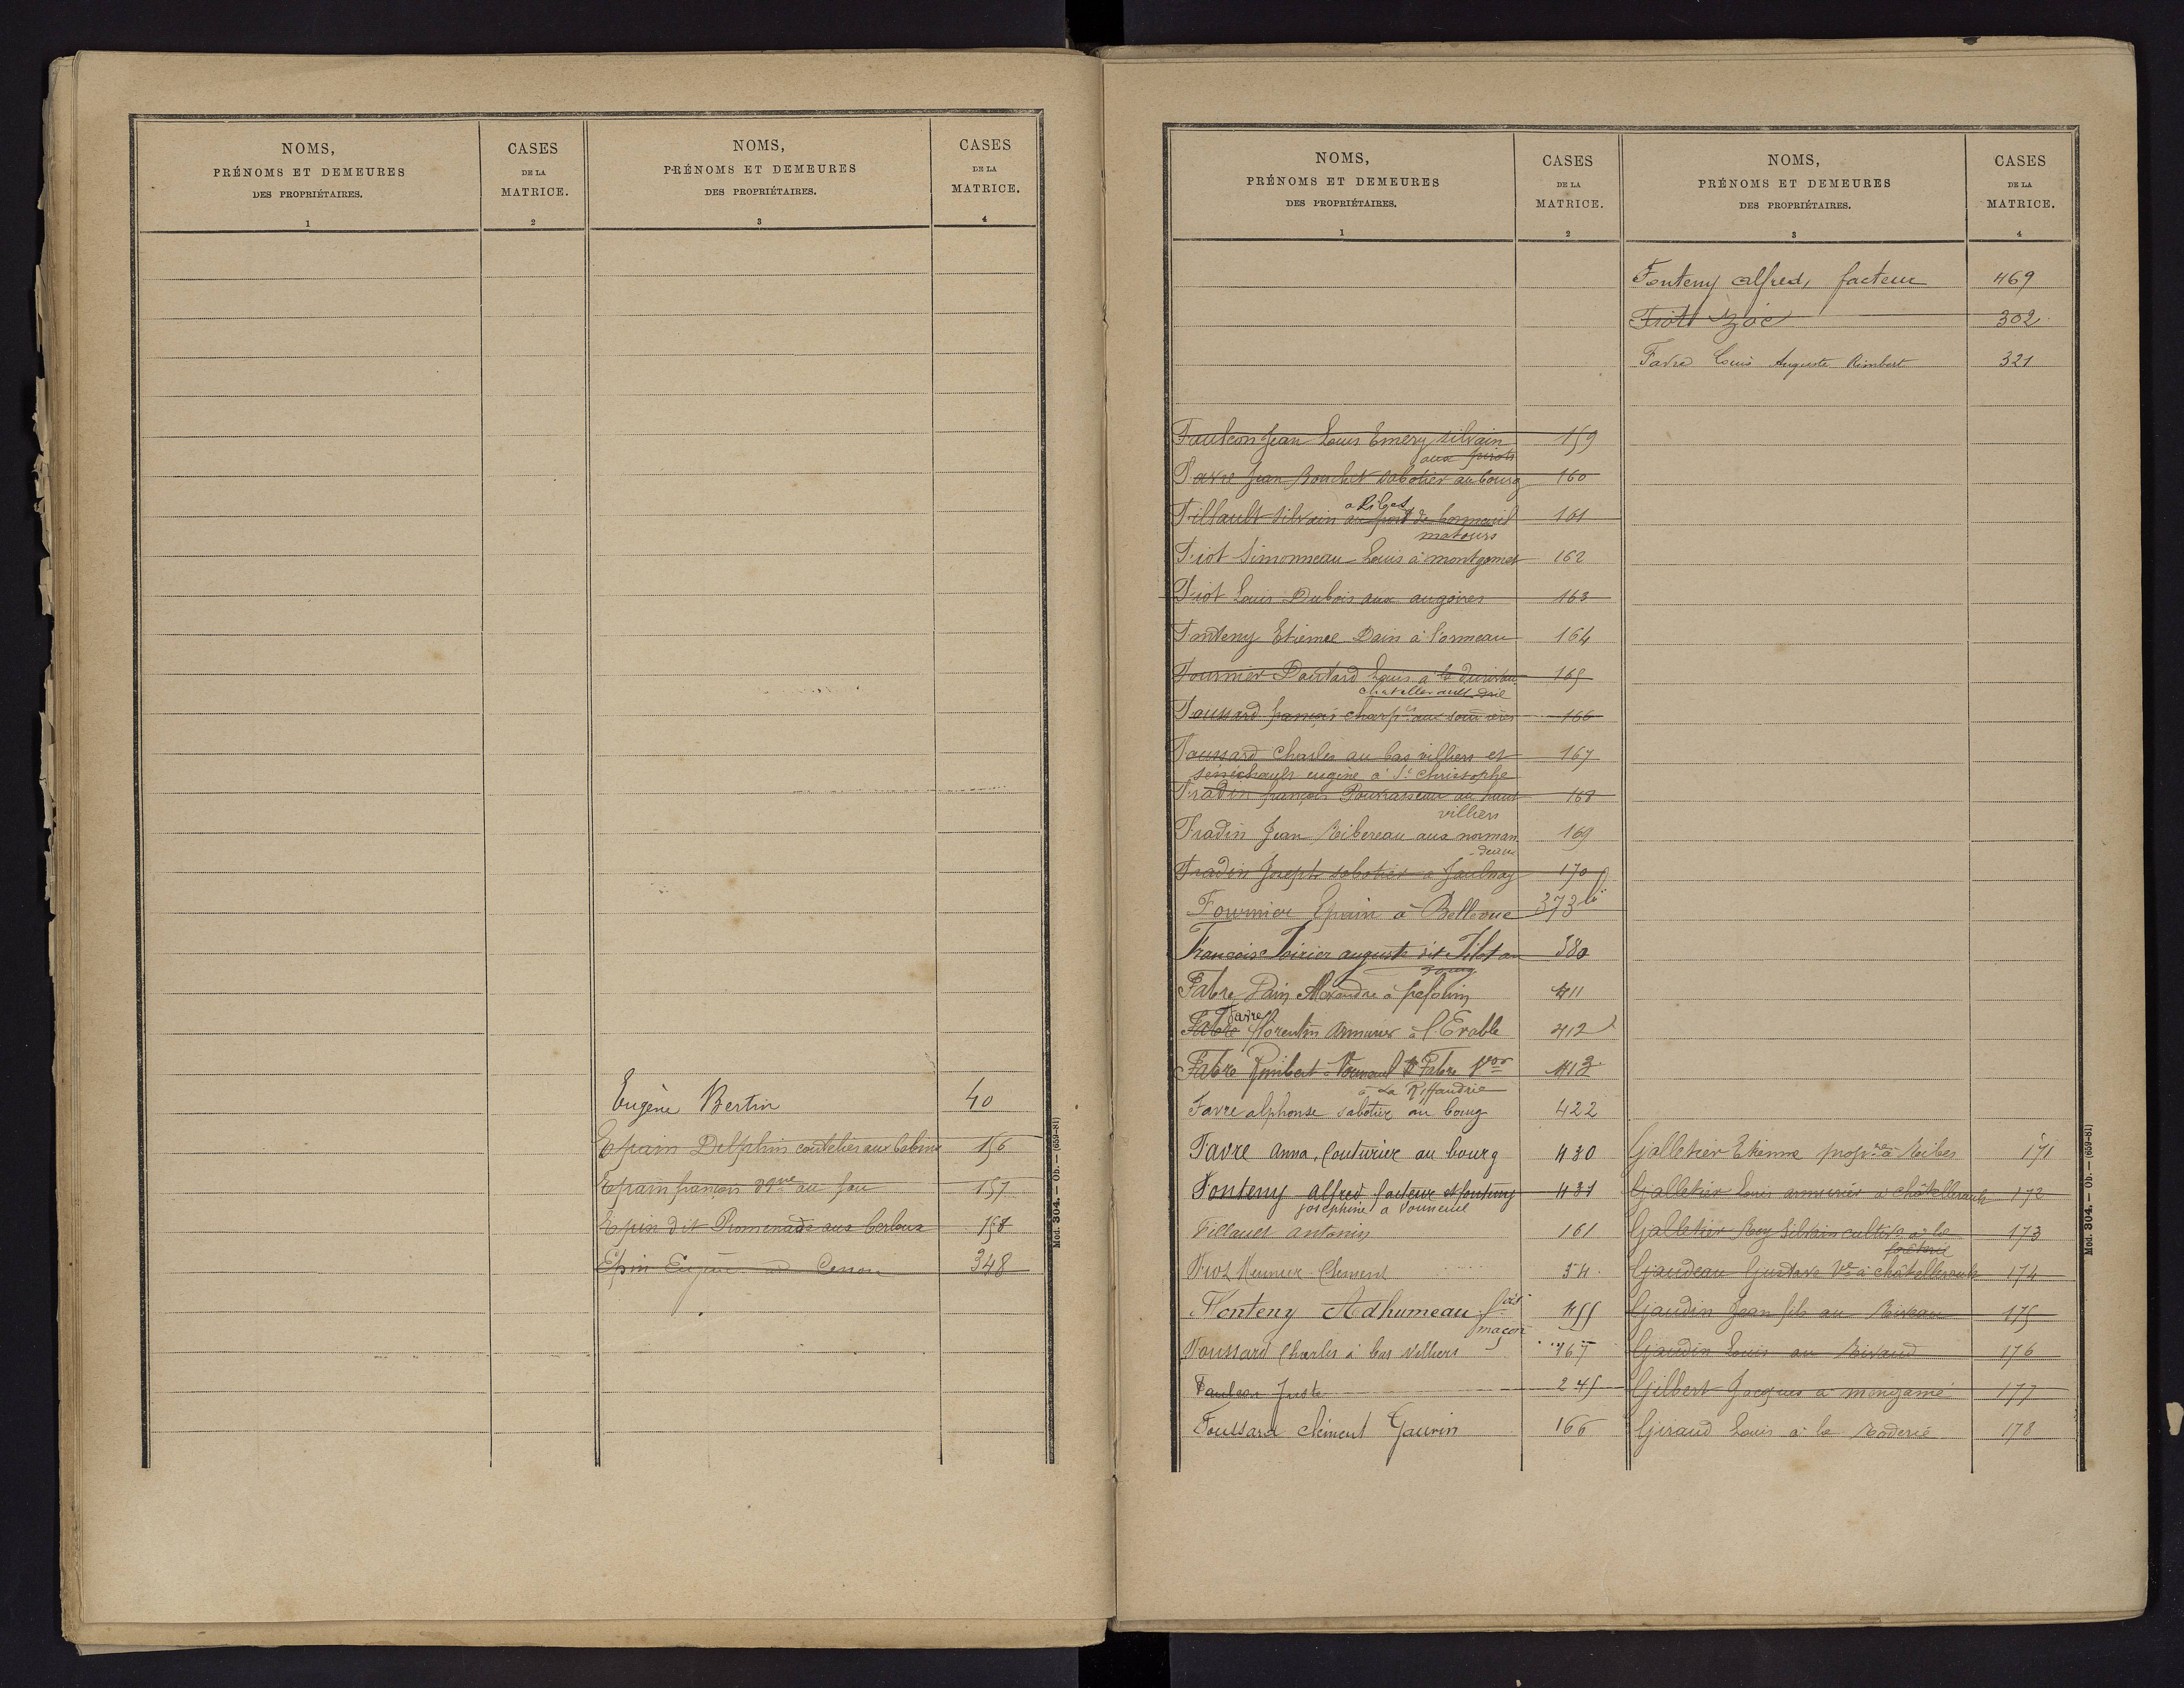 NOMS,
PRÉNOMS ET DEMEURES
DES PROPRIÉTAIRES.
1
CASES
DE LA
MATRICE.
2
NOMS,
PRÉNOMS ET DEMEURES
DES PROPRIÉTAIRES.
3
CASES
DE LA
MATRICE.
4
Eugène Bertin 40
Epain Delphin coutelier aux Cabine 156
Epain françois au fou 157
Epin dit Promenade aux 158
Epin Eugène à Cenon 348
Mod. 304. — Ob. — (659-81)
NOMS,
PRÉNOMS ET DEMEURES
DES PROPRIÉTAIRES.
1
CASES
DE LA
MATRICE.
2
Faulcon Jean Louis Emery silvain 159
aux
Favre Jean Bouchet sabotier au bourg 160
à Ribes
Fillault Silvain au port de bonneuil 161
matours
Friot Simonneau Louis à montgamet 162
Friot Louis Dubois aux angoires 163
Fonteny Etienne Dain à l'ormeau 164
Fournier Louis à la 165
chatellerault
Foussard françois aux 166
Foussard Charles au bas villiers et 167
Sénéchault eugène à St christophe
Fradin françois au haut 168
villiers
Fradin Jean Ribereau aux norman 169
Fradin Joseph sabotier à Jaulnay 170
Fournier Epain à Bellevue 373
François Poirier auguste dit au 380
bourg
Fabre Dain Alexandre à 411
Favre
Fabre florentin armurier à l'Erable 412
Fabre Rimbert Fabre 413
à La Riffaudrie
Favre alphonse sabotier au bourg 422
Favre Anna, Couturière au bourg 430
Fonteny alfred facteur et fonteny 431
josephine à Vouneuil
Fillault antonin 161
Friot Meunier Clement 54
Fonteny Adhumeau fois 455
maçon
Foussard Charles à bas Villiers 167
Faulcon Juste 245
Foussard clément Gauvin 166
NOMS,
PRÉNOMS ET DEMEURES
DES PROPRIÉTAIRES.
3
CASES
DE LA
MATRICE.
4
Fonteny alfred, facteur 469
Friot Zoé 302
Favre Louis Auguste Rimbert 321
Galletier Etienne propre à Ribes 171
Galletier Louis armurier à châtellerault 172
Galletier Roy Silvain cultivr à la 173
Gaudeau Gustave Ve à châtellerault 174
Gaudin Jean fils au Rivau 175
Gaudin Louis au Rivaud 176
Gilbert Jacques à mongamé 177
Giraud Louis à la Roderie 178
Mod. 304. — Ob. — (659-81)